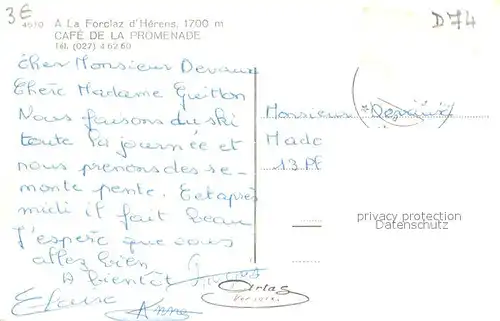 3€
D74
4970 A La Forclaz d'Hérens, 1700 m
CAFÉ DE LA PROMENADE
Tél. (027) 4 62 60
Cher Monsieur Devaux
Chère Madame Guitton
Nous faisons du ski
toute la journée et
nous prenons des re-
monte pente. Cet après
midi il fait beau
J'espère que vous
allez bien
A bientôt
Anne
Monsieur Devaux
Made
13 Pl
privacy protection
Datenschutz